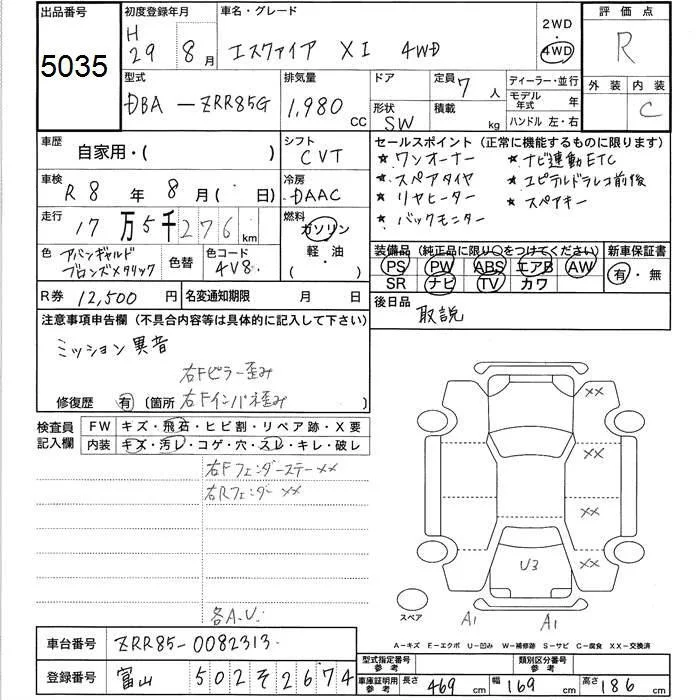 出品番号
5035
初度登録年月
H
29 8月
車名・グレード
エスクァイア XI 4WD
2WD
・
4WD
評価点
R
外装 内装
C
型式
DBA-ZRR85G
排気量
1,980 CC
ドア
形状
SW
定員 7 人
積載 kg
ディーラー・並行
モデル年式 年
ハンドル 左・右
車歴
自家用・( )
シフト
CVT
車検
R8年8月(・日)
冷房
DAAC
走行
17万5千276km
燃料
ガソリン
・
軽・油
( )
色 アバンギャルド
ブロンズメタリック
色替
色コード
4V8
R券 12,500 円
名変通知期限 月 日
セールスポイント (正常に機能するものに限ります)
★ワンオーナー ★ナビ連動ETC
★スペアタイヤ ★ユピテルドラレコ前後
★リヤヒーター ★スペアキー
★バックモニター
装備品 (純正品に限り○をつけてください)
PS PW ABS エアB AW
SR ナビ TV カワ
新車保証書
有・無
後日品
取説
注意事項申告欄 (不具合内容等は具体的に記入して下さい)
ミッション異音
右Fピラー歪み
修復歴 有 (箇所 右Fインパネ歪み )
検査員
記入欄
FW キズ・飛石・ヒビ割・リペア跡・X要
内装 キズ・汚レ・コゲ・穴・スレ・キレ・破レ
右Fフェンダーステー××
右Rフェンダー××
各A.U.
××
××
××
××
U3
A1
A1
スペア
A-キズ E-エクボ U-凹み W-補修跡 S-サビ C-腐食 XX-交換済
車台番号 ZRR85-0082313
登録番号 富山 502 そ 2674
型式指定番号
参考
類別区分番号
参考
車庫証明用
参考
長さ 469 cm 幅 169 cm 高さ 186 cm